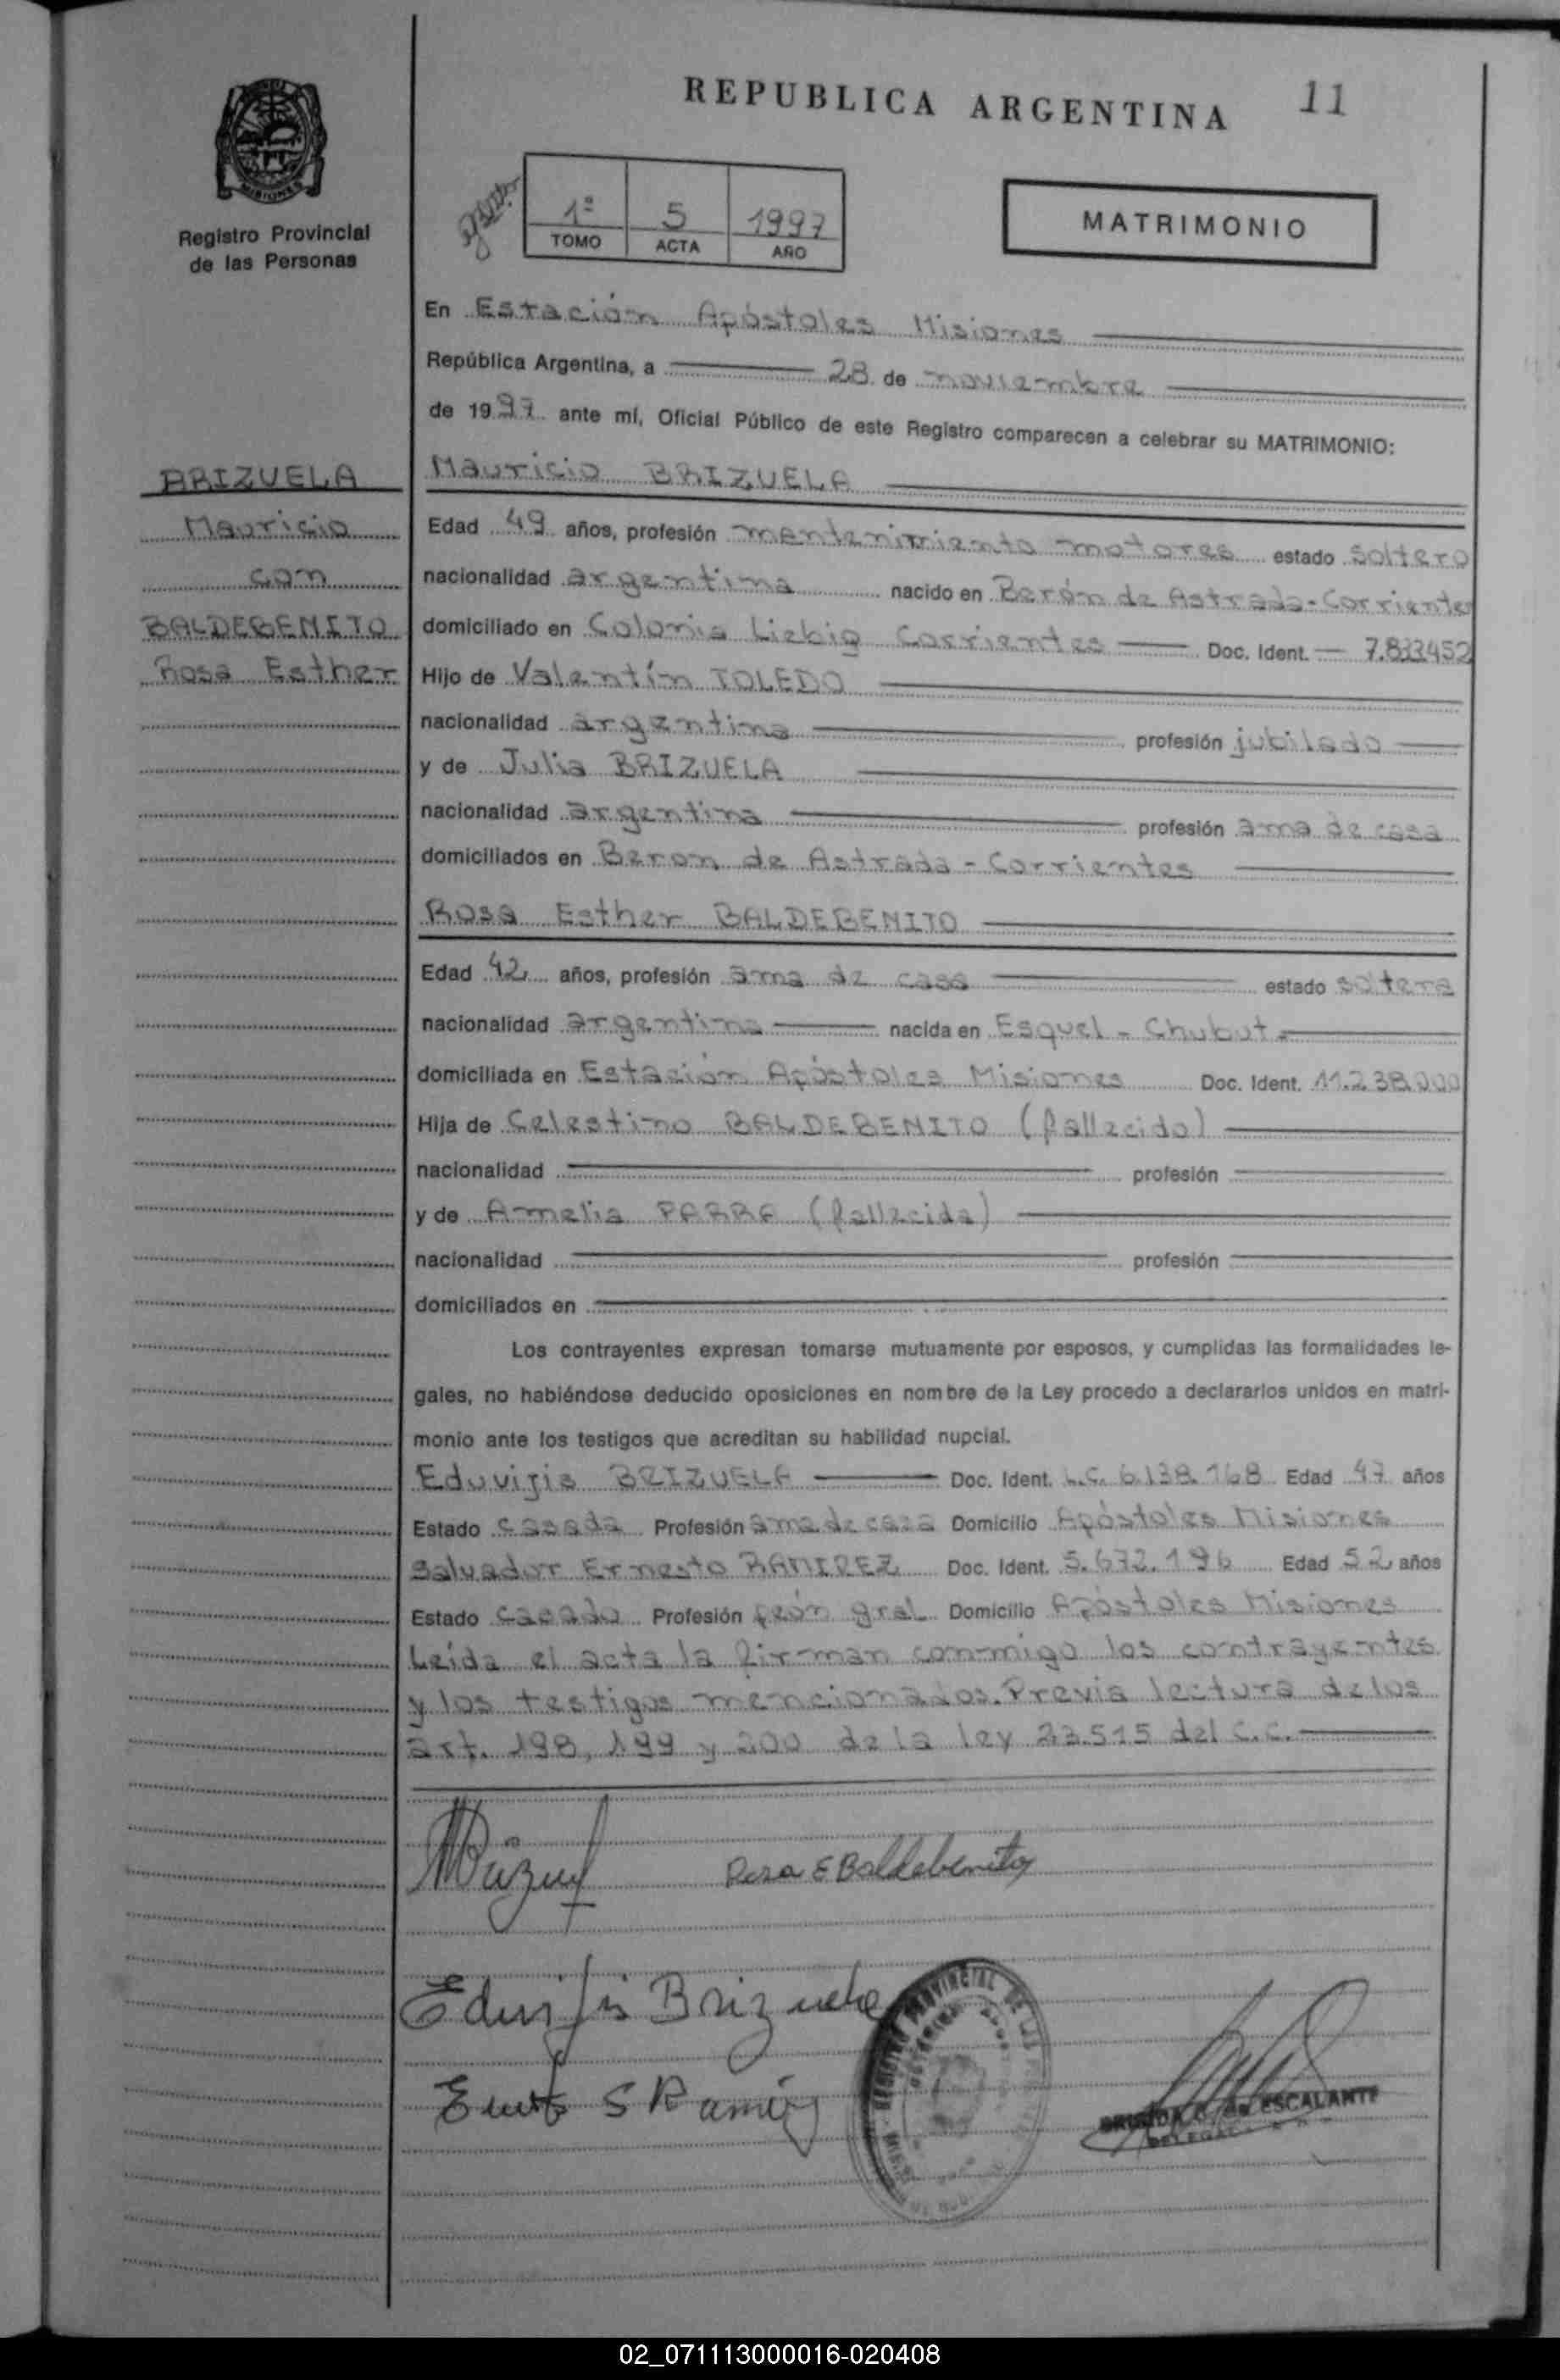 REPUBLICA ARGENTINA 11
MISIONES
Registro Provincial
de las Personas
1º 5 1997
TOMO ACTA AÑO
MATRIMONIO
En Estación Apóstoles Misiones
República Argentina, a 28 de noviembre
de 1997 ante mí, Oficial Público de este Registro comparecen a celebrar su MATRIMONIO:
BRIZUELA
Mauricio
con
BALDEBENITO
Rosa Esther
Mauricio BRIZUELA
Edad 49 años, profesión mantenimiento motores estado soltero
nacionalidad argentina nacido en Berón de Astrada-Corrientes
domiciliado en Colonia Liebig Corrientes Doc. Ident. 7.833.452
Hijo de Valentín TOLEDO
nacionalidad argentina profesión jubilado
y de Julia BRIZUELA
nacionalidad argentina profesión ama de casa
domiciliados en Beron de Astrada - Corrientes
Rosa Esther BALDEBENITO
Edad 42 años, profesión ama de casa estado soltera
nacionalidad argentina nacida en Esquel - Chubut
domiciliada en Estación Apóstoles Misiones Doc. Ident. 11.238.000
Hija de Celestino BALDEBENITO (fallecido)
nacionalidad profesión
y de Amelia PARRA (fallecida)
nacionalidad profesión
domiciliados en
Los contrayentes expresan tomarse mutuamente por esposos, y cumplidas las formalidades le-
gales, no habiéndose deducido oposiciones en nombre de la Ley procedo a declararlos unidos en matri-
monio ante los testigos que acreditan su habilidad nupcial.
Eduvijis BRIZUELA Doc. Ident. L.C. 6.138.168 Edad 47 años
Estado casada Profesión ama de casa Domicilio Apóstoles Misiones
Salvador Ernesto RAMIREZ Doc. Ident. 5.672.196 Edad 52 años
Estado casado Profesión peón gral Domicilio Apóstoles Misiones
Leída el acta la firman conmigo los contrayentes
y los testigos mencionados. Previa lectura de los
art. 198, 199 y 200 de la ley 23.515 del C.C.
Rosa E Baldebenito
Eduvijis Brizuela
S Ramirez
REGISTRO PROVINCIAL DE LAS
ESCALANTE
02_071113000016-020408